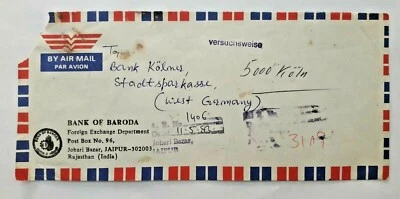 BY AIR MAIL
PAR AVION
To,
versuchsweise
Bank Kölner,
Stadtsparkasse,
5000 Köln
(West Germany)
1406
11.5.83
Johari Bazar,
JAIPUR
31A9
BANK OF BARODA
Foreign Exchange Department
Post Box No. 96,
Johari Bazar, JAIPUR-302003
Rajasthan (India)